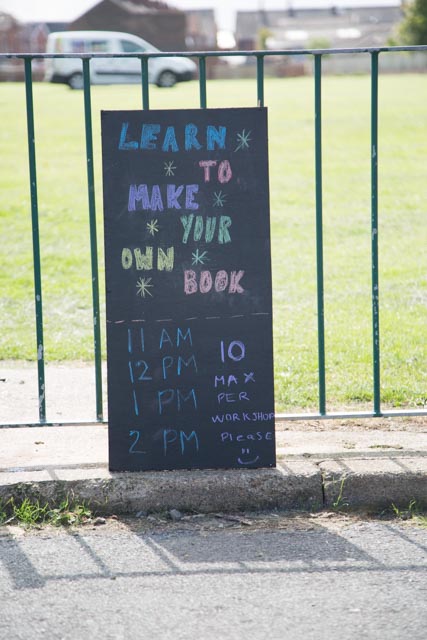 LEARN
TO
MAKE
YOUR
OWN
BOOK
11 AM
12 PM
1 PM
2 PM
10
MAX
PER
WORKSHOP
Please